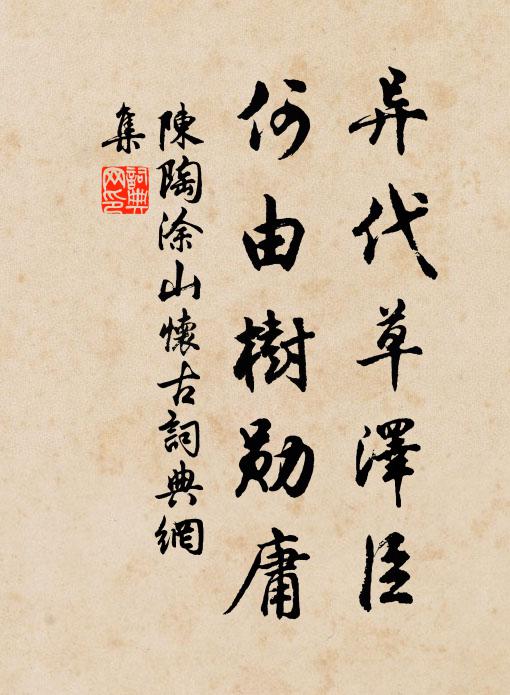 异代草澤臣
何由樹勋庸
陳陶涂山懷古詞典網
集
詞典网印